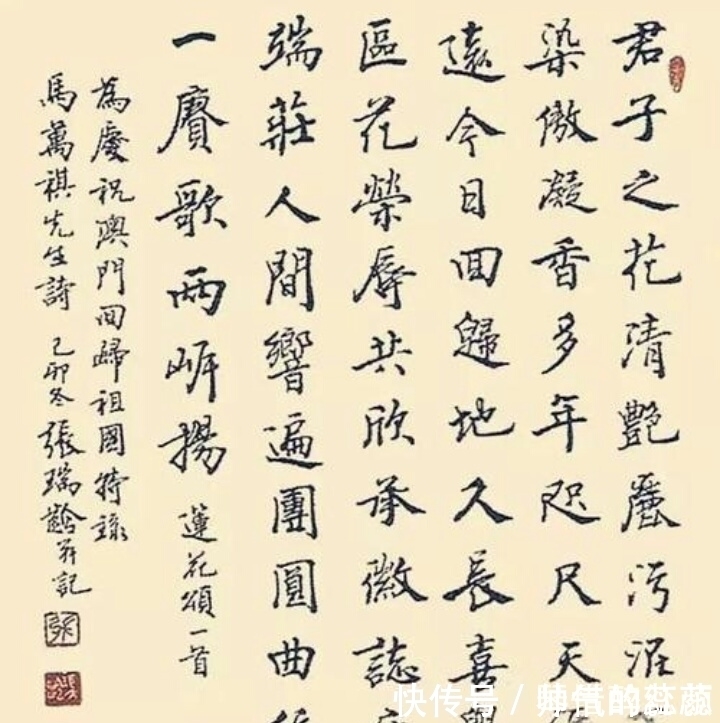 君子之花清艷麗污泥
染傲凝香多年咫尺天
遠今日回歸地久長喜
區花榮辱共欣承徽誌
端莊人間響遍團圓曲
一賡歌兩岸揚 蓮花頌一首
為慶祝澳門回歸祖國特錄
馬萬祺先生詩 己卯冬 張瑞齡并記
快传号 /